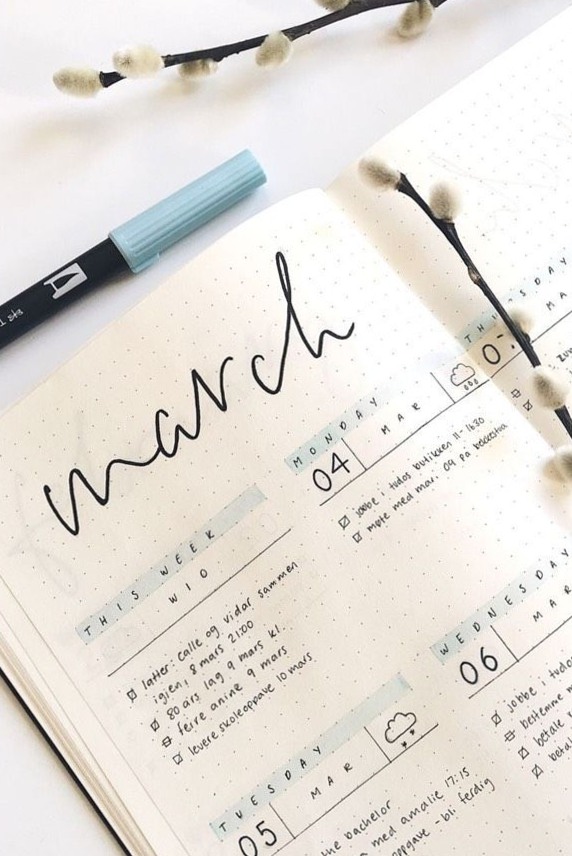 march
THIS WEEK
W 10
latter: Calle og vidar sammen
igjen, 8 mars 21:00
80 års lag 9 mars kl.
feire anine 9 mars
levere skoleoppgave 10 mars
MONDAY
04
MAR
jobbe i tudos butikken 11-1630
møte med mar. 09 på
TUESDAY
05
MAR
bachelor
med amalie 17:15
oppgave - bli ferdig
WEDNESDAY
06
MAR
jobbe i tudos
bestemme
betale
betal
07